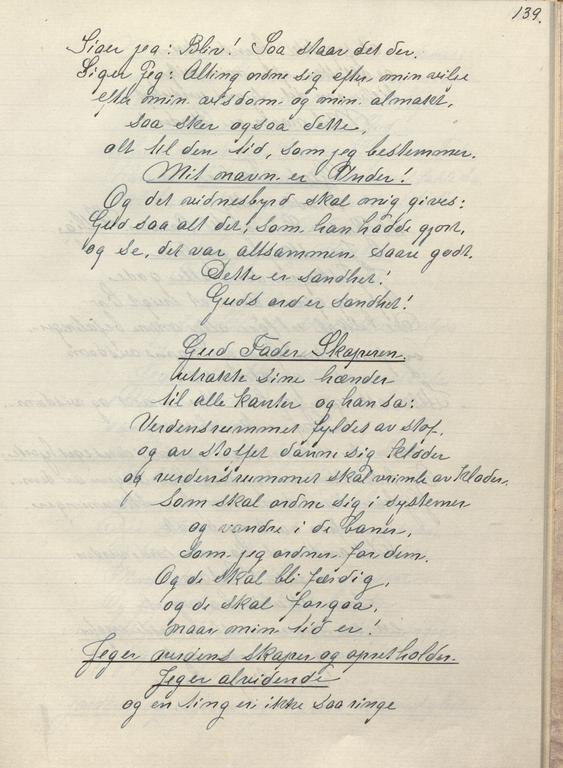 139.
Siger jeg: Bliv! Saa staar det der.
Siger Jeg: Alting ordne sig efter min vilje
efter min visdom og min almakt,
saa sker ogsaa dette,
alt til den tid, som jeg bestemmer.
Mit navn er Under!
Og det vidnesbyrd skal mig gives:
Gud saa alt det, som han hadde gjort,
og se, det var altsammen saare godt.
Dette er sandhet!
Guds ord er sandhet!
Gud Fader Skaperen
utrakte sine hænder
til alle kanter og han sa:
Verdensrummet fyldes av stof,
og av stoffet danne sig kloder
og verdensrummet skal vrimle av kloder.
Som skal ordne sig i systemer
og vandre i de baner,
som jeg ordner for dem.
Og de skal bli færdig,
og de skal forgaa,
naar min tid er!
Jeg er verdens skaper og opretholder.
Jeg er alvidende
og en ting er ikke saa ringe